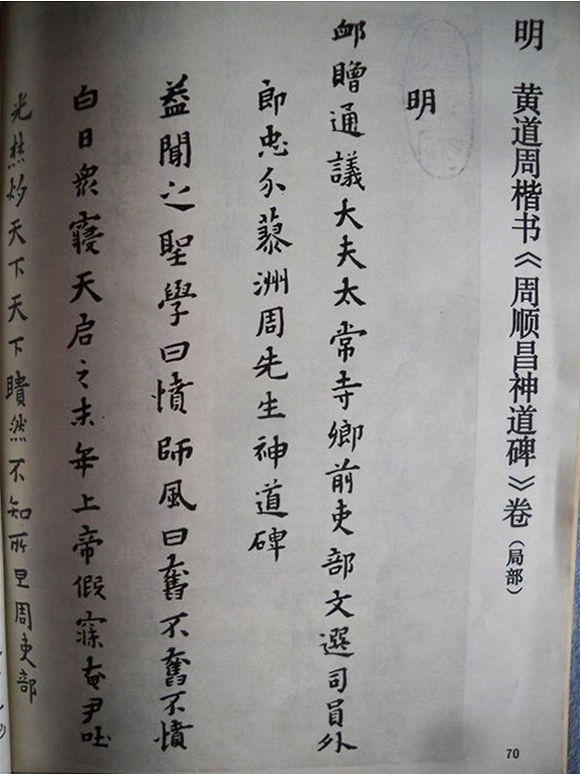 明　黄道周楷书《周顺昌神道碑》卷（局部）
明
卹贈通議大夫太常寺卿前吏部文選司員外
郎忠介蓼洲周先生神道碑
益聞之聖學曰憤師風曰奮不奮不憤
白日衆寢天启之末年上帝假寐奄尹吐
光焦灼天下天下瞶然不知所里周吏部
70